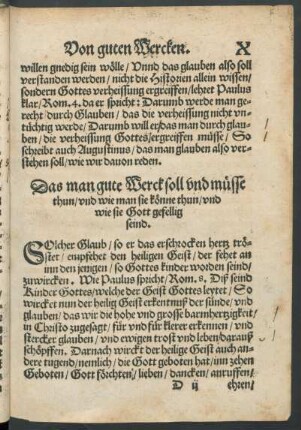 Von guten Wercken. X
willen gnedig sein wölle / Vnnd das glauben also soll
verstanden werden / nicht die Historien allein wissen /
sondern Gottes verheissung ergreiffen / lehret Paulus
klar / Rom. 4. da er spricht: Darumb werde man ge-
recht durch Glauben / das die verheissung nicht vn-
tüchtig werde / Darumb will er / das man durch glau-
ben / die verheissung Gottes / ergreiffen müsse / So
schreibt auch Augustinus / das man glauben also ver-
stehen soll / wie wir dauon reden.
Das man gute Werck soll vnd müsse
thun / vnd wie man sie könne thun / vnd
wie sie Gott gefellig
seind.
SOlcher Glaub / so er das erschrocken hertz trö-
stet / empfehet den heiligen Geist / der fehet an
inn den jenigen / so Gottes kinder worden seind /
zuwircken. Wie Paulus spricht / Rom. 8. Diß seind
Kinder Gottes / welche der Geist Gottes leytet / So
wircket nun der heilig Geist erkentnuß der sünde / vnd
glauben / das wir die hohe vnd grosse barmhertzigkeit /
in Christo zugesagt / für vnd für klerer erkennen / vnd
stercker glauben / vnd ewigen trost vnd leben darauß
schöpffen. Darnach wirckt der heilige Geist auch an-
dere tugend / nemlich / die Gott geboten hat / inn zehen
Geboten / Gott förchten / lieben / dancken / anruffen /
D ij ehren /